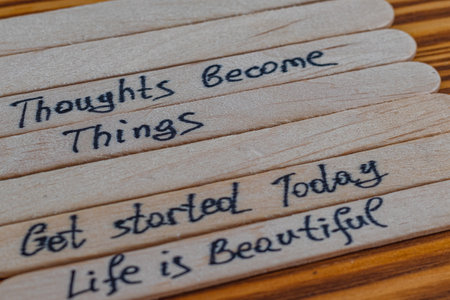 Thoughts Become
Things
Get started Today
Life is Beautiful